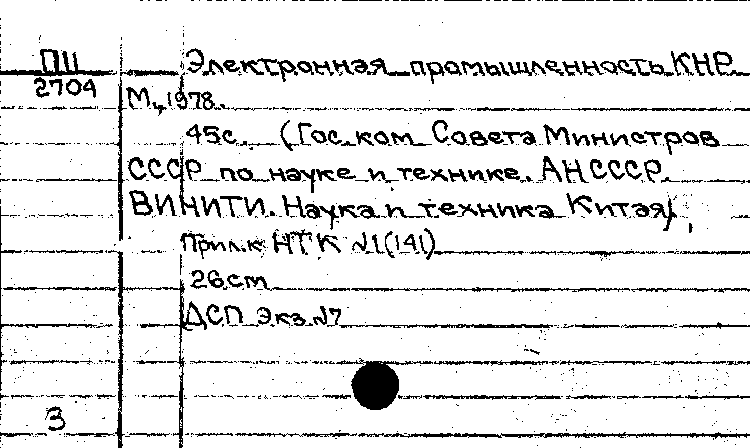 П11
2704
Электронная промышленность КНР
М., 1978.
45с. (Гос. ком. Совета Министров
СССР по науке и технике. АН СССР.
ВИНИТИ. Наука и техника Китая),
Прил. к НТК №1(141)
26cm
ДСП Экз. №7
3